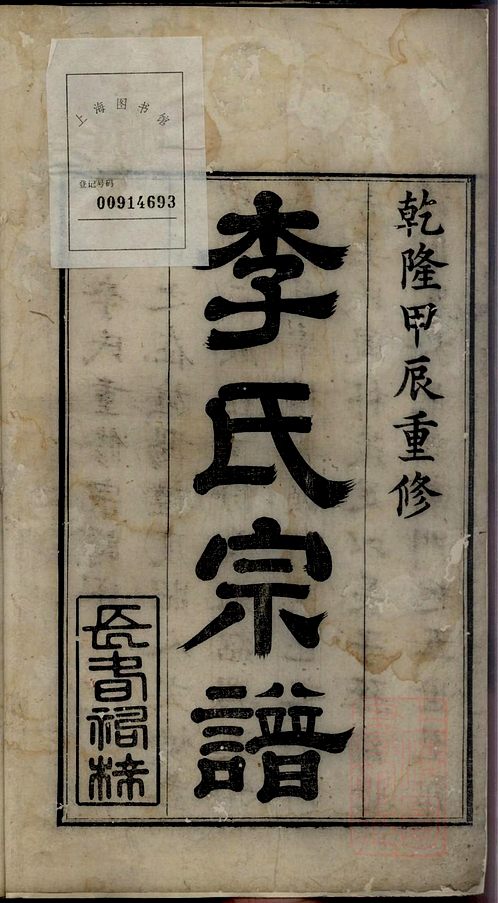 上海图书馆
登记号码
00914693
乾隆甲辰重修
李氏宗譜